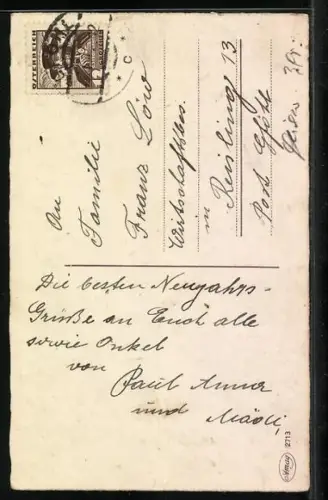 ÖSTERREICH
An
Familie
Franz Löw
Wirtschaftsbes.
in
Reisling 13
Post
Die besten Neujahrs-
Grüße an Euch alle
sowie Onkel
von
Paul Anna
und Mädi,
Amag
2713